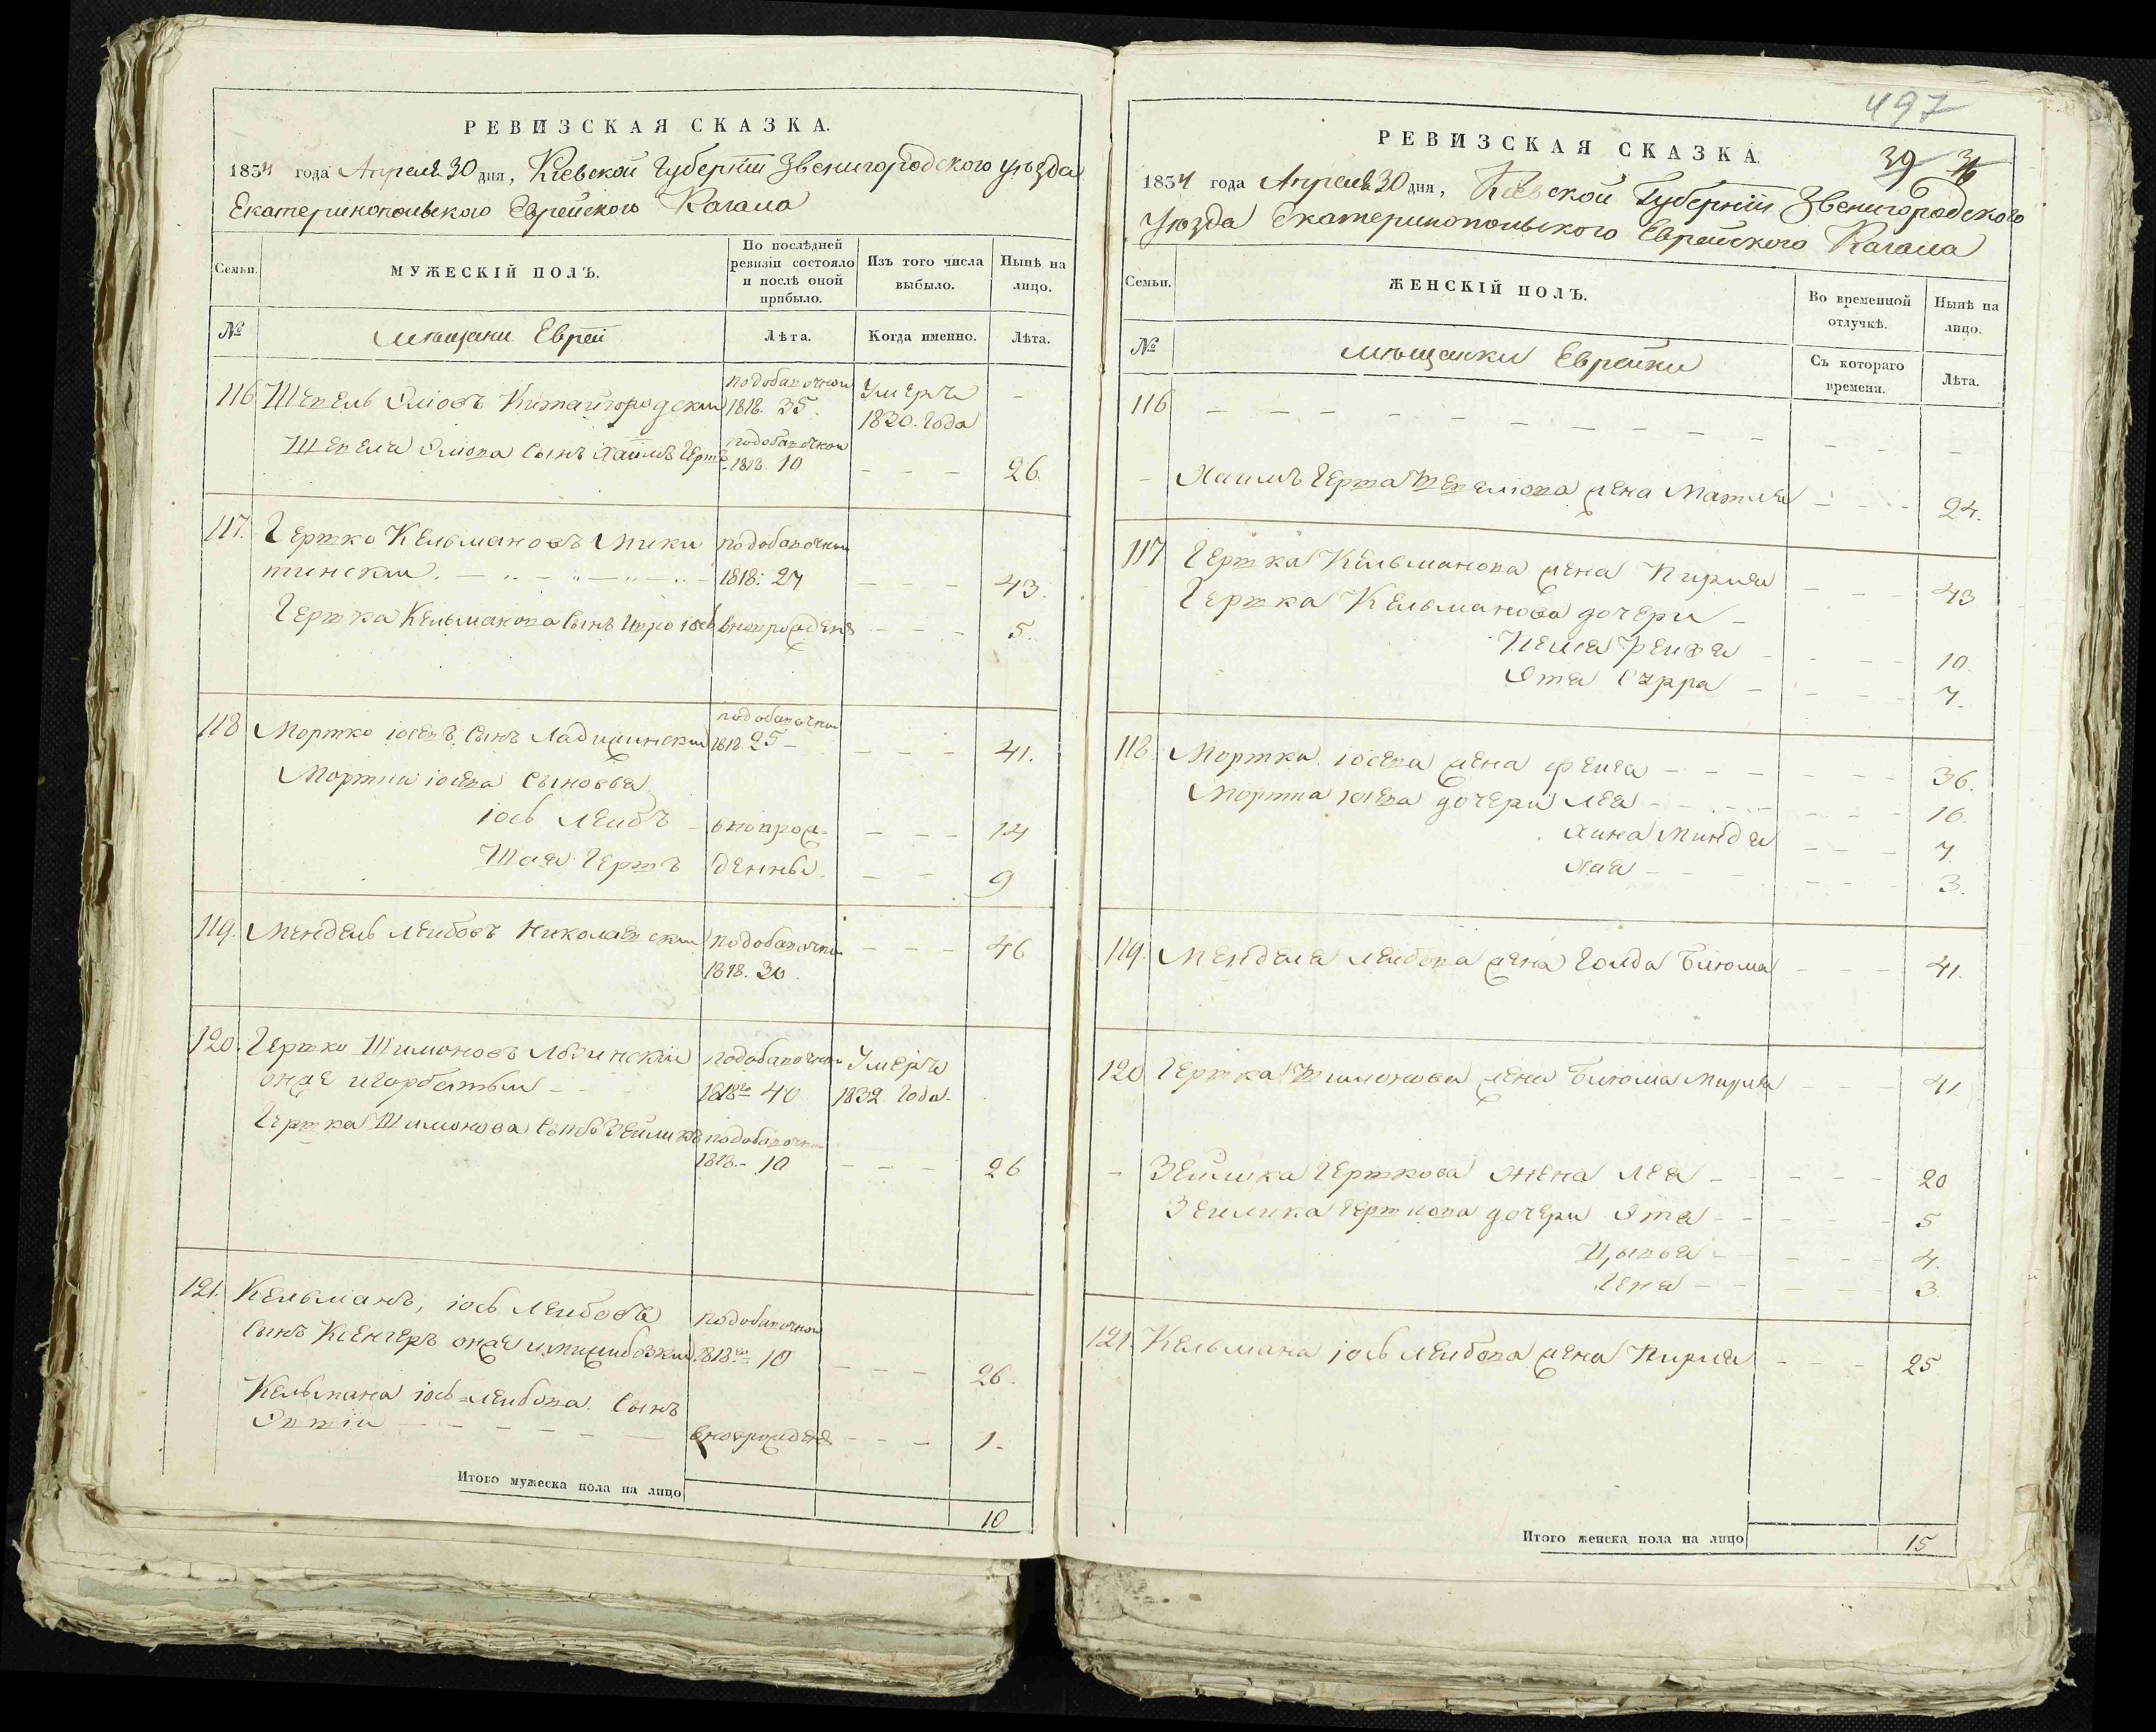 РЕВИЗСКАЯ СКАЗКА.
1834 года Апреля 30 дня, Кіевской Губерніи Звенигородского уѣзда
Екатеринопольского Еврейского Кагала
Семьи.
МУЖЕСКІЙ ПОЛЪ.
По послѣдней ревизіи состояло и послѣ оной прибыло.
Изъ того числа выбыло.
Нынѣ на лицо.
№
мѣщани Евреи
Лѣта.
Когда именно.
Лѣта.
116 Шепель Китайгородскии подобавочнои 1818. 35. Умеръ 1830. Года -
Шепеля сынъ Хаимъ Герт подобавочнои 1818. 10 - - - 26.
117. Гертко Кельмановъ Мики подобавочнои
тинскии. 1818: 27 - - - 43.
Гертка Кельманова сынъ - - - 5.
118 Мортко іосепъ сынъ Ладижинскии подобавочнои 1818. 25 - - - - 41.
Мортка іосепа сыновья
іось Леибъ вновро - - - 14
Шая Гертъ жденны. - - 9
119. Мендель Леибовъ Николаевскии подобавочнои - - - 46
1818. 30.
120. Гертко Шимоновъ подобавочнои Умеръ
онже игорбатыи 1818го 40 1832 Года.
Гертка Шимонова сынъ Зейликъ подобавочнои
1818. - 10 - - - 26
121. Кельманъ, іось Леибовъ подобавочнои
сынъ онже 1818го 10 - - - 26.
Кельмана іось=Леибова. сынъ
- - - 1.
Итого мужеска пола на лицо
10
497
39
РЕВИЗСКАЯ СКАЗКА.
1834 года Апреля 30 дня, Кіевской Губерніи Звенигородского
Уѣзда Екатеринопольского Еврейского Кагала
Семьи.
ЖЕНСКІЙ ПОЛЪ.
Во временной отлучкѣ.
Нынѣ на лицо.
№
мѣщанки Еврейки
Съ котораго времени.
Лѣта.
116 - - - - - - - - - -
- Хаимъ Герта жена Матля - - - 24.
117 Гертка Кельманова жена Пирля - - - 43
Гертка Кельманова дочери -
- - - 10.
Сурра - - - - 7.
118. Мортка. іосепа жена феига - - - 36.
Мортка іосепа дочери Леа - - - 16.
Хана Миндя - - - 7.
Хая - - - 3.
119. Менделя Леибова жена Голда Блюма - - - 41.
120 Гертка Шимонова жена Блюма Мирля - - - 41.
- Зейлика Герткова жена Леа - - - 20
Зейлика Герткова дочери Эта - - - 5
Ципья - - - 4.
Гена - - - 3
121. Кельмана іось Леибова жена Пирля - - - 25.
Итого женска пола на лицо
15